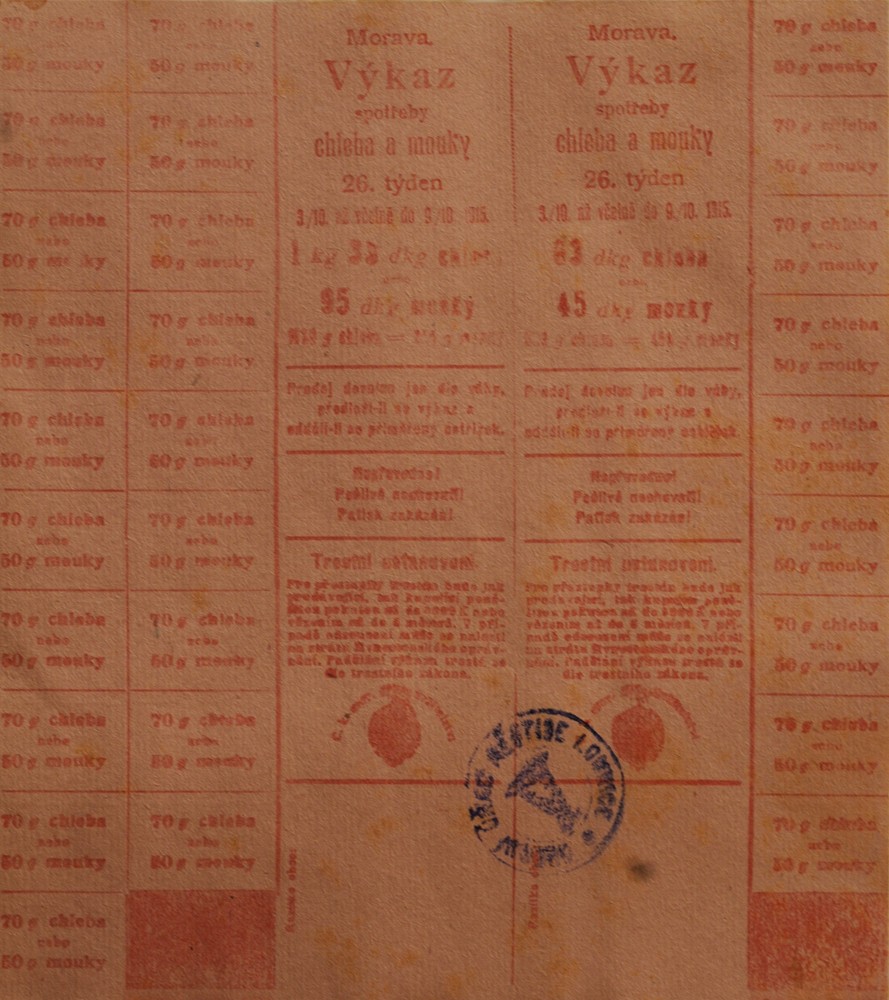 70 g chleba
nebo
50 g mouky
70 g chleba
nebo
50 g mouky
70 g chleba
nebo
50 g mouky
70 g chleba
nebo
50 g mouky
70 g chleba
nebo
50 g mouky
70 g chleba
nebo
50 g mouky
70 g chleba
nebo
50 g mouky
70 g chleba
nebo
50 g mouky
70 g chleba
nebo
50 g mouky
70 g chleba
nebo
50 g mouky
70 g chleba
nebo
50 g mouky
70 g chleba
nebo
50 g mouky
70 g chleba
nebo
50 g mouky
70 g chleba
nebo
50 g mouky
70 g chleba
nebo
50 g mouky
70 g chleba
nebo
50 g mouky
70 g chleba
nebo
50 g mouky
70 g chleba
nebo
50 g mouky
70 g chleba
nebo
50 g mouky
Morava.
Výkaz
spotřeby
chleba a mouky
26. týden
3./10. až včetně do 9./10. 1915.
1 kg 33 dkg chleba
nebo
95 dkg mouky
g chleba = g mouky
Prodej dovolen jen dle váhy,
předloží-li se výkaz a
oddělí-li se přiměřený ústřižek.
Nepřevodno!
Pečlivě uschovati!
Patisk zakázán!
Trestní ustanovení.
Pro přestupky trestán bude jak
prodávající, tak kupující peně-
žitou pokutou až do 5000 K nebo
vězením až do 6 měsíců. V pří-
padě odsouzení může se naléztí
na ztrátu živnostenského opráv-
nění. Padělání výkazu trestá se
dle trestního zákona.
Morava.
Výkaz
spotřeby
chleba a mouky
26. týden
3./10. až včetně do 9./10. 1915.
63 dkg chleba
nebo
45 dkg mouky
g chleba = g mouky
Prodej dovolen jen dle váhy,
předloží-li se výkaz a
oddělí-li se přiměřený ústřižek.
Nepřevodno!
Pečlivě uschovati!
Patisk zakázán!
Trestní ustanovení.
Pro přestupky trestán bude jak
prodávající, tak kupující peně-
žitou pokutou až do 5000 K nebo
vězením až do 6 měsíců. V pří-
padě odsouzení může se naléztí
na ztrátu živnostenského opráv-
nění. Padělání výkazu trestá se
dle trestního zákona.
OBECNÍ ÚŘAD MĚSTYSE LOMNICE
Razítko obce:
Razítko obce:
70 g chleba
nebo
50 g mouky
70 g chleba
nebo
50 g mouky
70 g chleba
nebo
50 g mouky
70 g chleba
nebo
50 g mouky
70 g chleba
nebo
50 g mouky
70 g chleba
nebo
50 g mouky
70 g chleba
nebo
50 g mouky
70 g chleba
nebo
50 g mouky
70 g chleba
nebo
50 g mouky